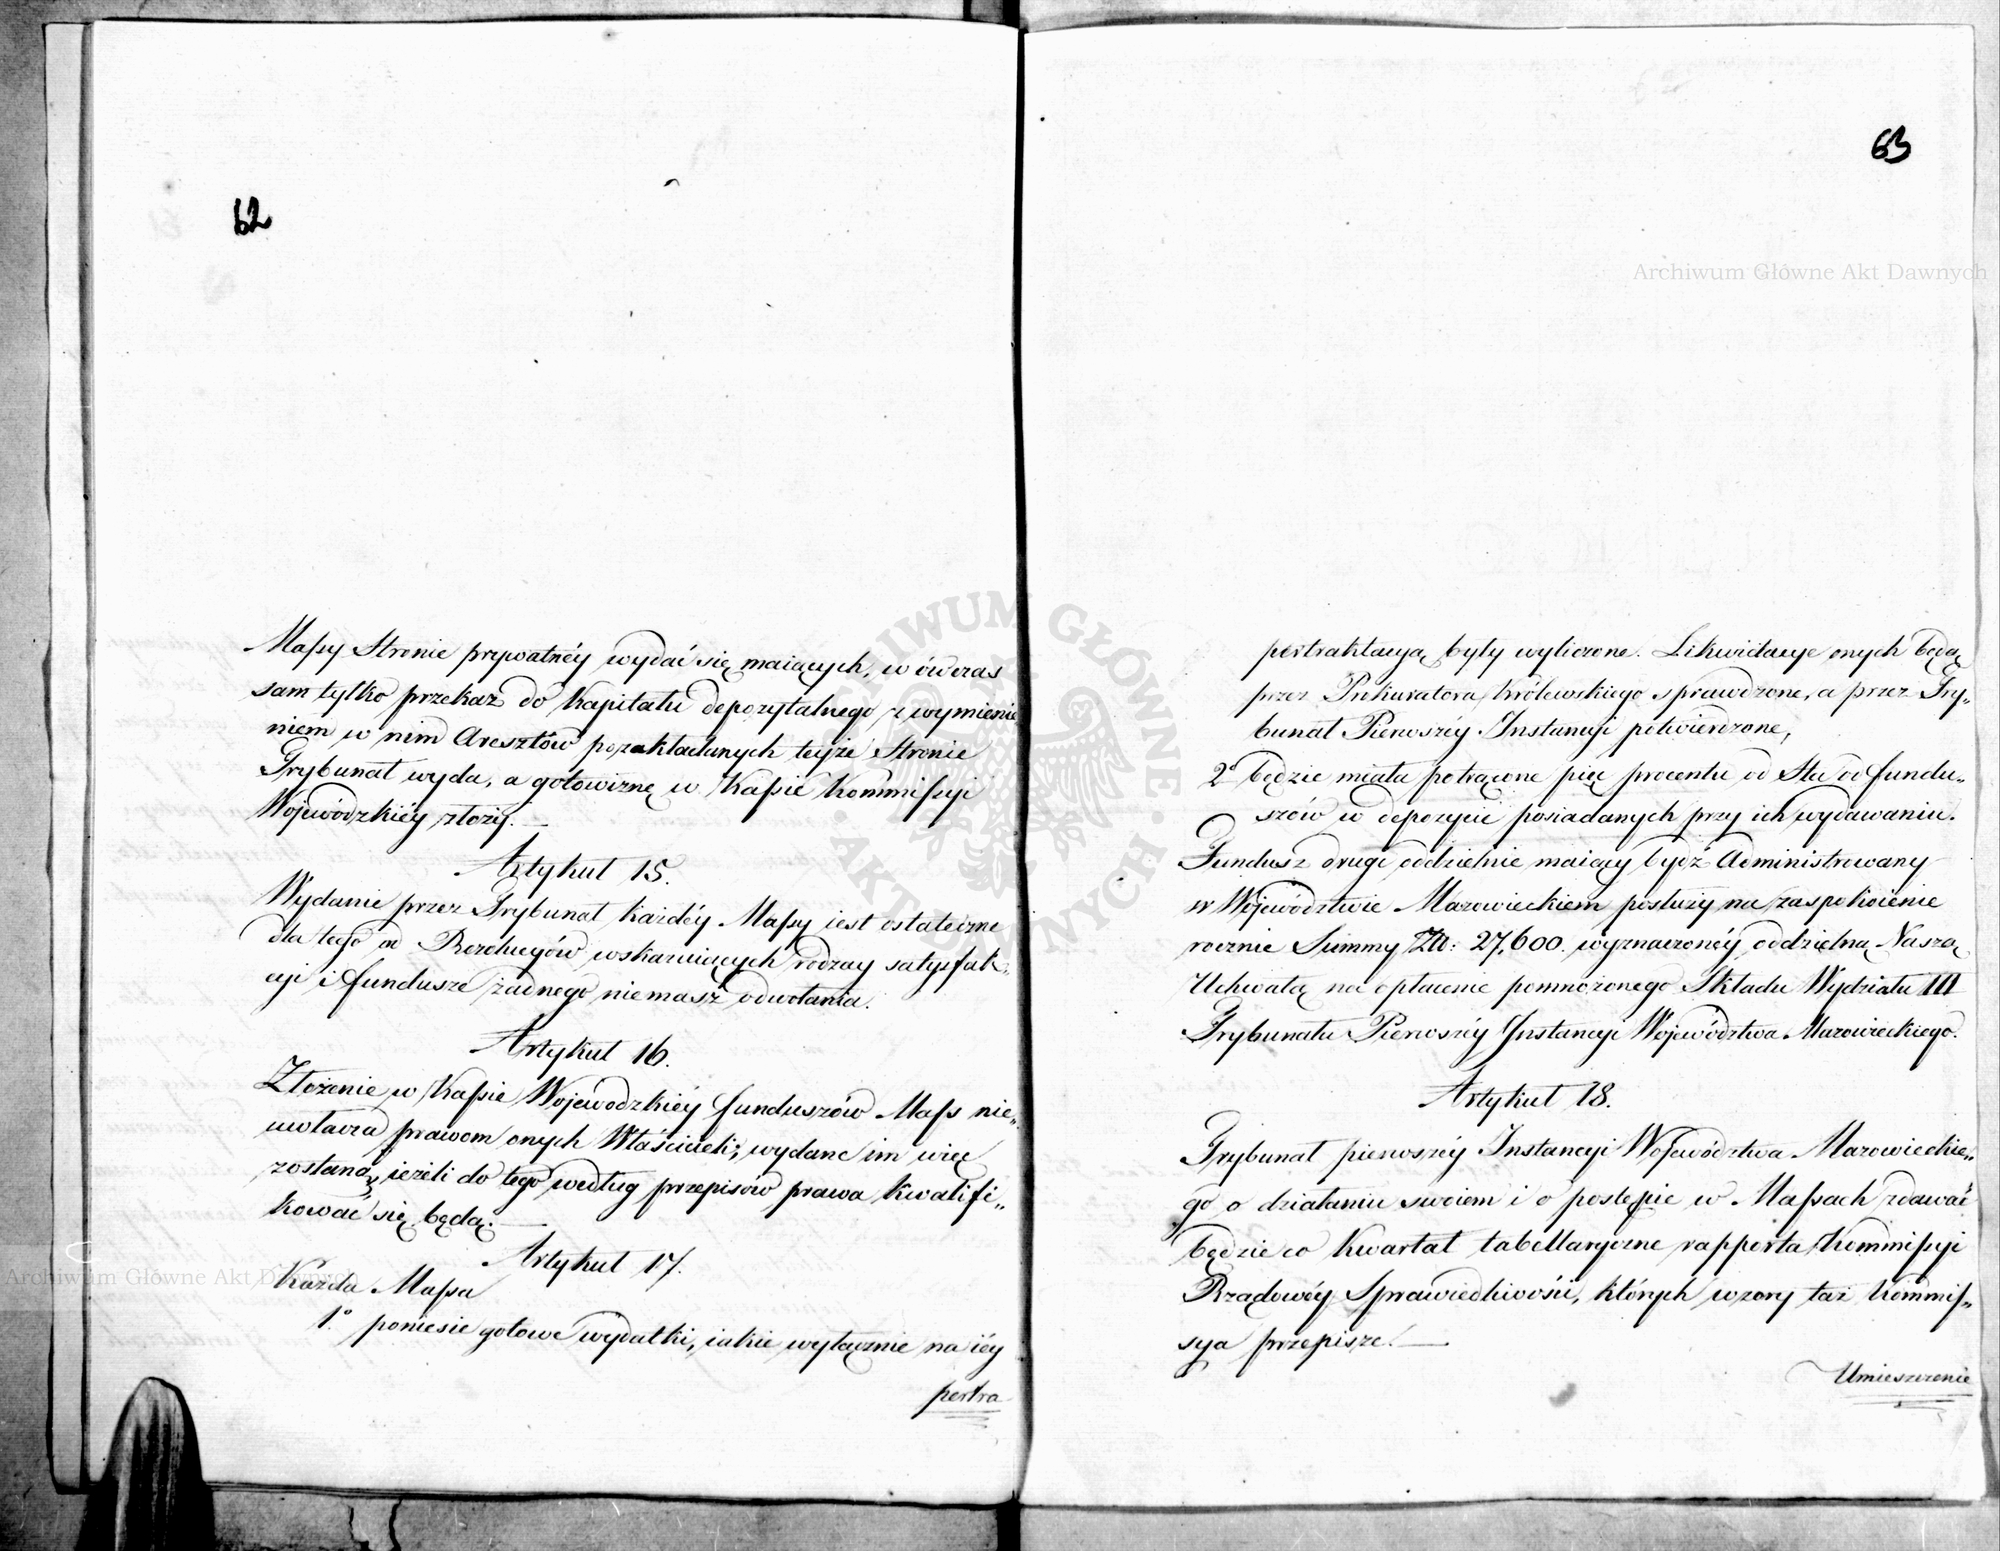 62
Massy Stronie prywatnéy wydać się maiących, w ówczas
sam tylko przekaz do Kapitału depozytalnego z wymienie
niem w nim Aresztów pozakładanych teyże Stronie
Trybunał wyda, a gotowiznę w Kassie Kommissyi
Wojewódzkiéy złoży. —
Artykuł 15.
Wydanie przez Trybunał każdéy Massy iest ostateczne
dla tego od Rezolucyów wskazuiących rodzay satysfak„
cyi i fundusze żadnego niemasz odwołania.
Artykuł 16.
Złożenie w Kassie Wojewodzkiéy funduszów Mass nie„
uwłacza prawom onych Właścicieli, wydane im więc
zostaną, ieżeli do tego według przepisów prawa kwalifi„
kować się będą. —
Artykuł 17.
Każda Massa
1.° poniesie gotowe wydatki, iakie wyłącznie na iéy
pertra
63
pertraktacyą były wyliczone. Likwidacye onych będą
przez Prokuratora Królewskiego sprawdzone, a przez Try„
bunał Pierwszéy Instancyi potwierdzone,
2° będzie miała potrącone pięć procentu od Sta od fundu„
szów w depozycie posiadanych przy ich wydawaniu.
Fundusz drugi oddzielnie maiący bydź Administrowany
w Województwie Mazowieckiem posłuży na zaspokoienie
rocznie Summy Złł: 27,600. wyznaczonéy oddzielną Naszą
Uchwałą na opłacenie pomnożonego Składu Wydziału III
Trybunału Pierwszéy Instancyi Województwa Mazowieckiego.
Artykuł 18.
Trybunał pierwszéy Instancyi Województwa Mazowieckie„
go o działaniu swoiem i o postępie w Massach zdawać
będzie co kwartał tabellaryczne rapporta Kommissyi
Rządowéy Sprawiedliwości, których wzory taż Kommis„
sya przepisze. —
Umieszczenie
Archiwum Główne Akt Dawnych
Archiwum Główne Akt Dawnych
ARCHIWUM GŁÓWNE AKT DAWNYCH